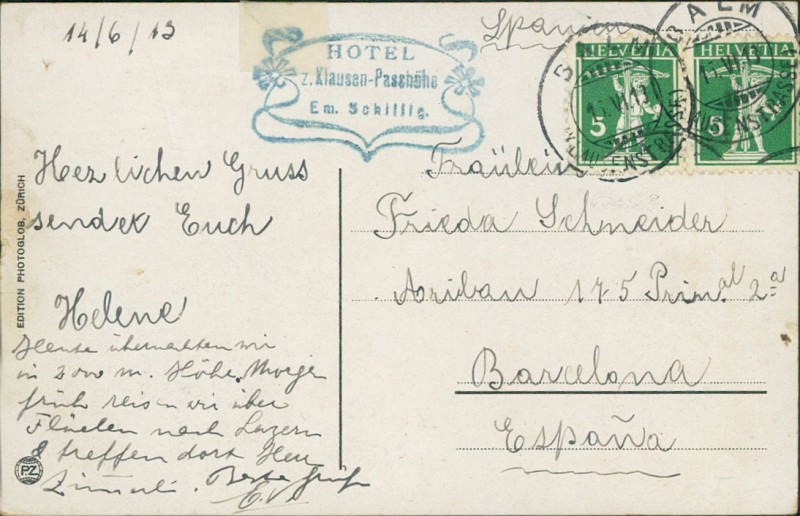 14/6/13
Spanien
HOTEL
z. Klausen-Passhöhe
Em. Schillig.
BALM
HELVETIA
5
BALM
HELVETIA
5
Herzlichen Gruss
sendet Euch
Helene
Heute übernachten wir
in 2000 m. Höhe. Morgen
früh reisen wir über
Flüelen nach Luzern
& treffen dort Herr
Beste Grüße
E.V.
Fräulein
Frieda Schneider
Aribau 175 Prim.al 2a
Barcelona
España
EDITION PHOTOGLOB, ZÜRICH
PZ